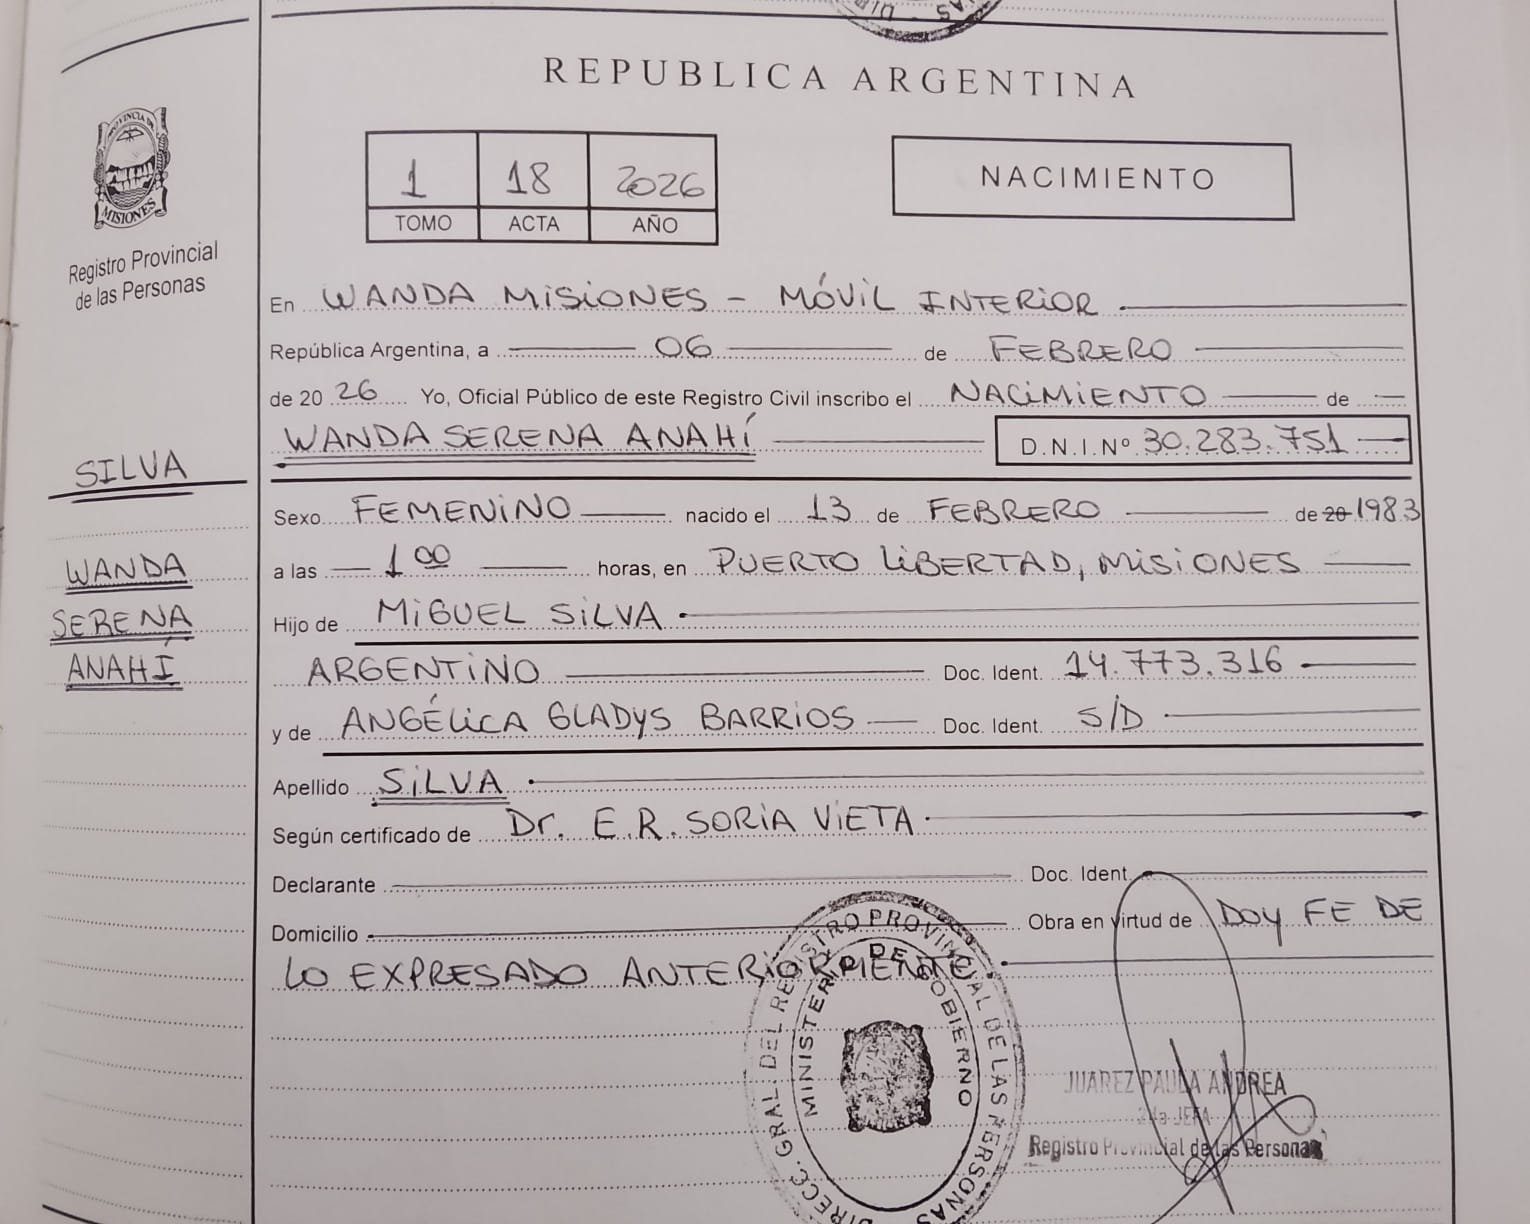 REPUBLICA ARGENTINA
PROVINCIA DE
MISIONES
Registro Provincial
de las Personas
1 18 2026
TOMO ACTA AÑO
NACIMIENTO
En WANDA MISIONES - MÓVIL INTERIOR
República Argentina, a 06 de FEBRERO
de 20 26 Yo, Oficial Público de este Registro Civil inscribo el NACIMIENTO de
WANDA SERENA ANAHÍ D.N.I.Nº 30.283.751
SILVA
WANDA
SERENA
ANAHÍ
Sexo FEMENINO nacido el 13 de FEBRERO de 20 1983
a las 1 00 horas, en PUERTO LIBERTAD, MISIONES
Hijo de MIGUEL SILVA
ARGENTINO Doc. Ident. 14.773.316
y de ANGÉLICA GLADYS BARRIOS Doc. Ident. S/D
Apellido SILVA
Según certificado de Dr. E.R. SORIA VIETA
Declarante Doc. Ident.
Domicilio Obra en virtud de DOY FE DE
LO EXPRESADO ANTERIORMENTE
DIRECC. GRAL. DEL REGISTRO PROVINCIAL DE LAS PERSONAS
MINISTERIO DE GOBIERNO
JUAREZ PAULA ANDREA
JEFA
Registro Provincial de las Personas